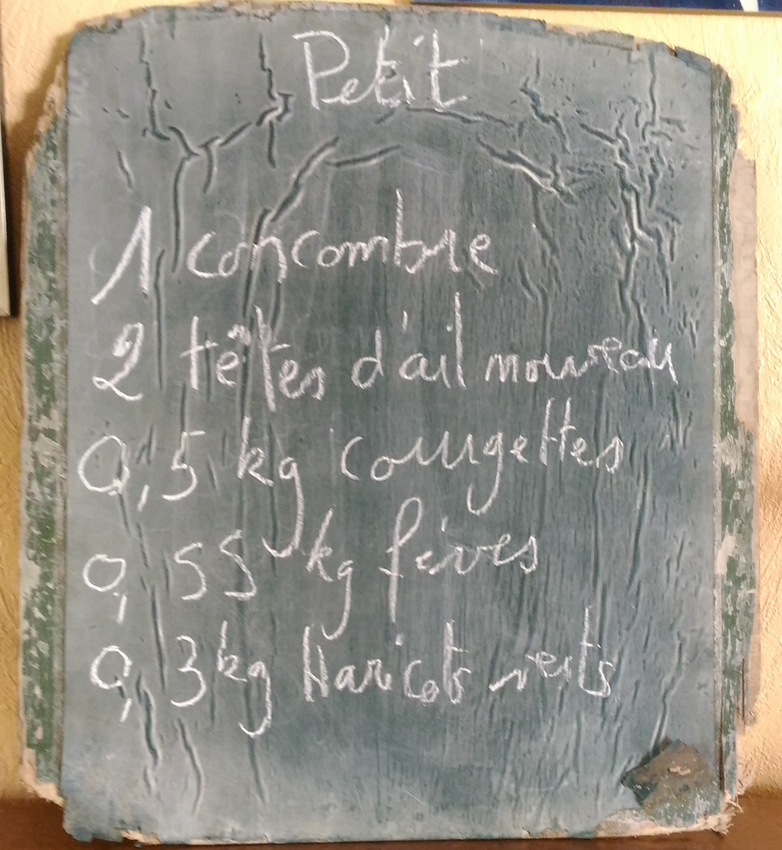 Petit
1 concombre
2 têtes d'ail nouveau
0,5 kg courgettes
0,55 kg fèves
0,3 kg Haricots verts